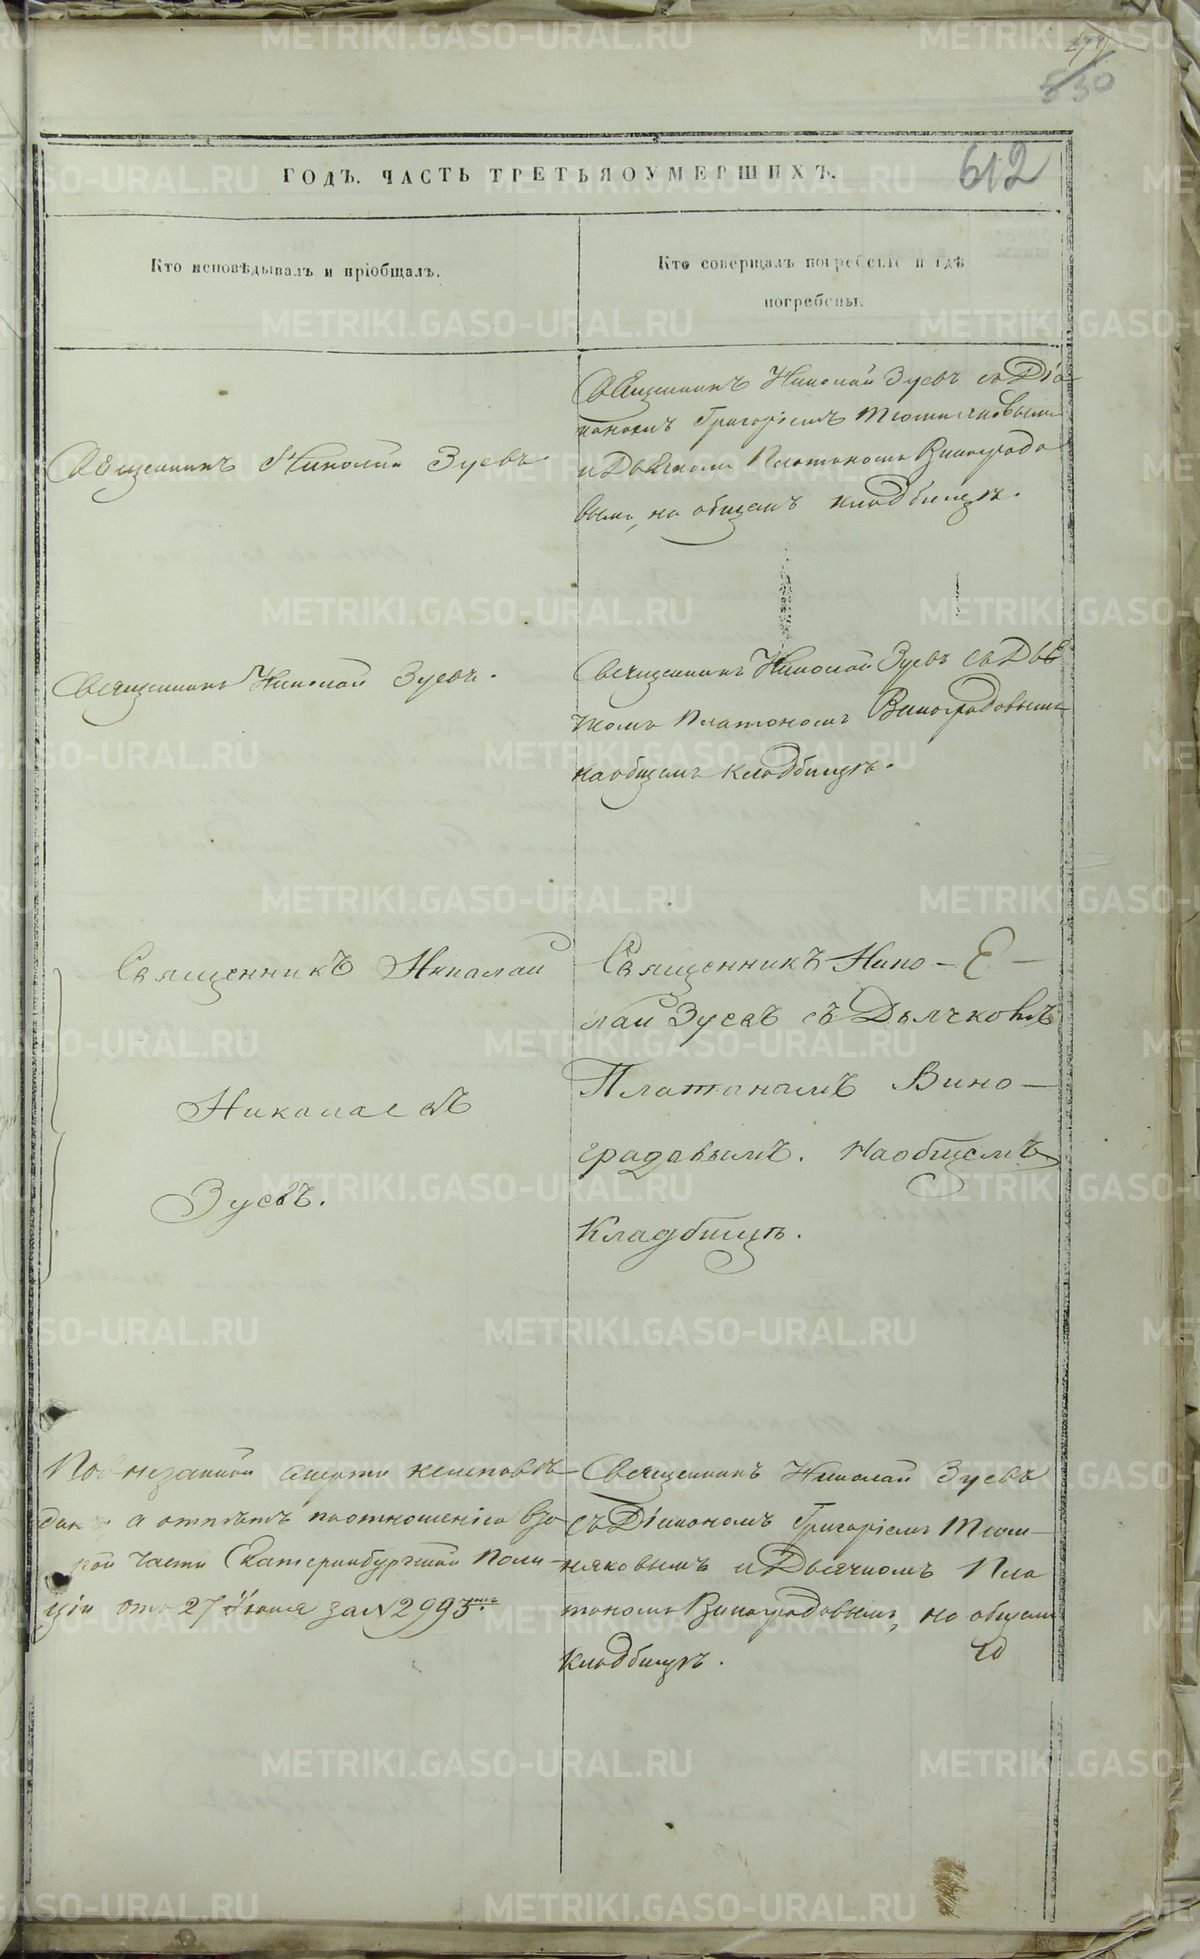 612
ГОДЪ. ЧАСТЬ ТРЕТЬЯ О УМЕРШИХЪ.
Кто исповѣдывалъ и пріобщалъ.
Кто совершалъ погребеніе и гдѣ
погребены.
Священникъ Николай Зуевъ
Священникъ Николай Зуевъ съ Діа
кономъ Григоріемъ Тюшняковымъ
и Дьячкомъ Платономъ Виноградо
вымъ, на общемъ кладбищѣ.
Священникъ Николай Зуевъ.
Священникъ Николай Зуевъ съ Дья
чкомъ Платономъ Виноградовымъ
на общемъ кладбищѣ.
Священникъ Николай
Николаевъ
Зуевъ.
Священникъ Нико-
лай Зуевъ съ Дьячковъ
Платономъ Вино-
градовымъ. На общемъ
Кладбищѣ.
По внезапной смерти неисповѣ-
данъ а отпѣтъ по отношенію вто
рой части Екатеринбургской Поли-
ціи отъ 27 Іюня за № 2993.
Священникъ Николай Зуевъ
съ Діакономъ Григоріемъ Тюш-
няковымъ и Дьячкомъ Пла
тономъ Виноградовымъ, на общемъ
кладбищѣ.
METRIKI.GASO-URAL.RU